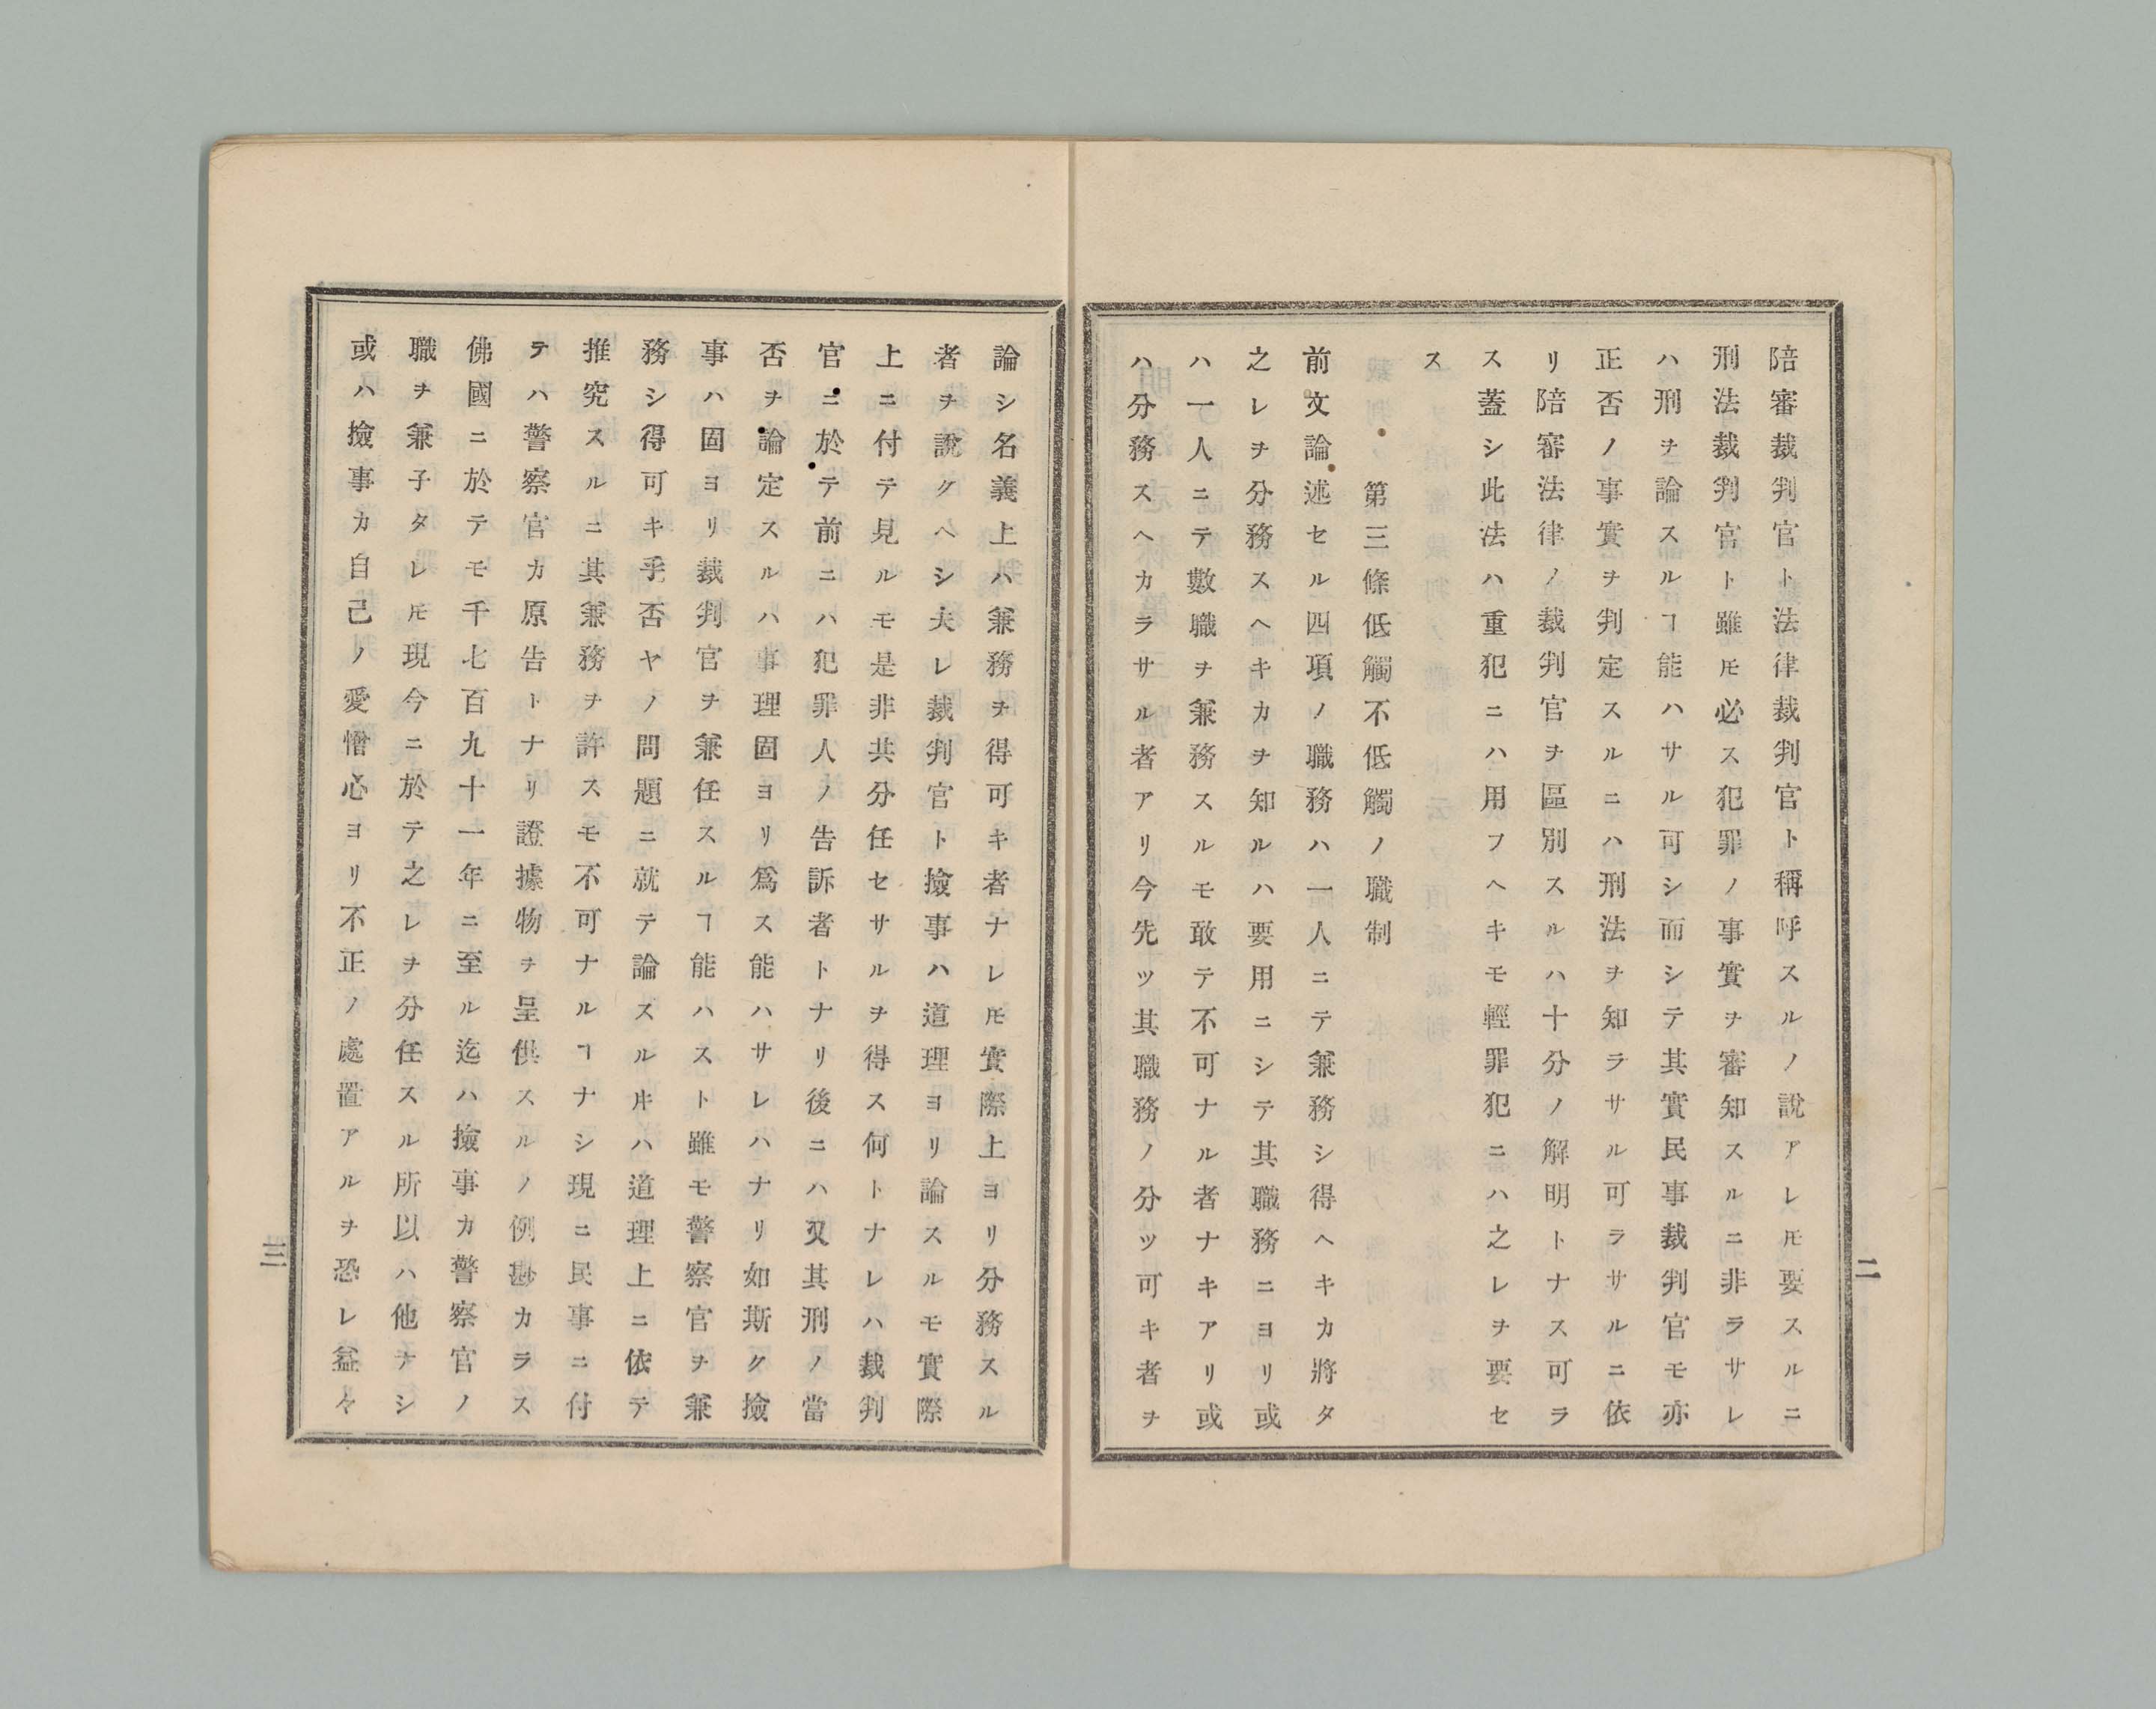 陪審裁判官ト法律裁判官ト稱呼スルノ說アレ𪜈要スルニ
刑法裁判官ト雖𪜈必ス犯罪ノ事實ヲ審知スルニ非ラサレ
ハ刑ヲ論スルヿ能ハサル可シ而シテ其實民事裁判官モ亦
正否ノ事實ヲ判定スルニハ刑法ヲ知ラサル可ラサルニ依
リ陪審法律ノ裁判官ヲ區別スルハ十分ノ解明トナス可ラ
ス蓋シ此法ハ重犯ニハ用フヘキモ輕罪犯ニハ之レヲ要セ
ス
第三條低觸不低觸ノ職制
前文論述セル四項ノ職務ハ一人ニテ兼務シ得ヘキカ將タ
之レヲ分務スヘキカヲ知ルハ要用ニシテ其職務ニヨリ或
ハ一人ニテ數職ヲ兼務スルモ敢テ不可ナル者ナキアリ或
ハ分務スヘカラサル者アリ今先ツ其職務ノ分ツ可キ者ヲ
二
論シ名義上ハ兼務ヲ得可キ者ナレ𪜈實際上ヨリ分務スル
者ヲ說クヘシ夫レ裁判官ト撿事ハ道理ヨリ論スルモ實際
上ニ付テ見ルモ是非共分任セサルヲ得ス何トナレハ裁判
官ニ於テ前ニハ犯罪人ノ告訴者トナリ後ニハ又其刑ノ當
否ヲ論定スルハ事理固ヨリ爲ス能ハサレハナリ如斯ク撿
事ハ固ヨリ裁判官ヲ兼任スルヿ能ハスト雖モ警察官ヲ兼
務シ得可キ乎否ヤノ問題ニ就テ論スルㇳキハ道理上ニ依テ
推究スルニ其兼務ヲ許スモ不可ナルヿナシ現ニ民事ニ付
テハ警察官カ原告トナリ證據物ヲ呈供スルノ例尠カラス
佛國ニ於テモ千七百九十一年ニ至ル迄ハ撿事カ警察官ノ
職ヲ兼子タレ𪜈現今ニ於テ之レヲ分任スル所以ハ他ナシ
或ハ撿事カ自己ノ愛憎心ヨリ不正ノ處置アルヲ恐レ益々
三